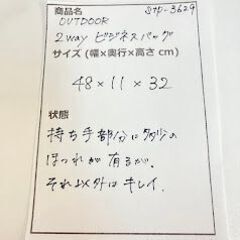 商品名 stp-3629
OUTDOOR
2way ビジネスバッグ
サイズ (幅×奥行×高さ cm)
48×11×32
状態
持ち手部分に多少の
ほつれが有るが、
それ以外はキレイ.